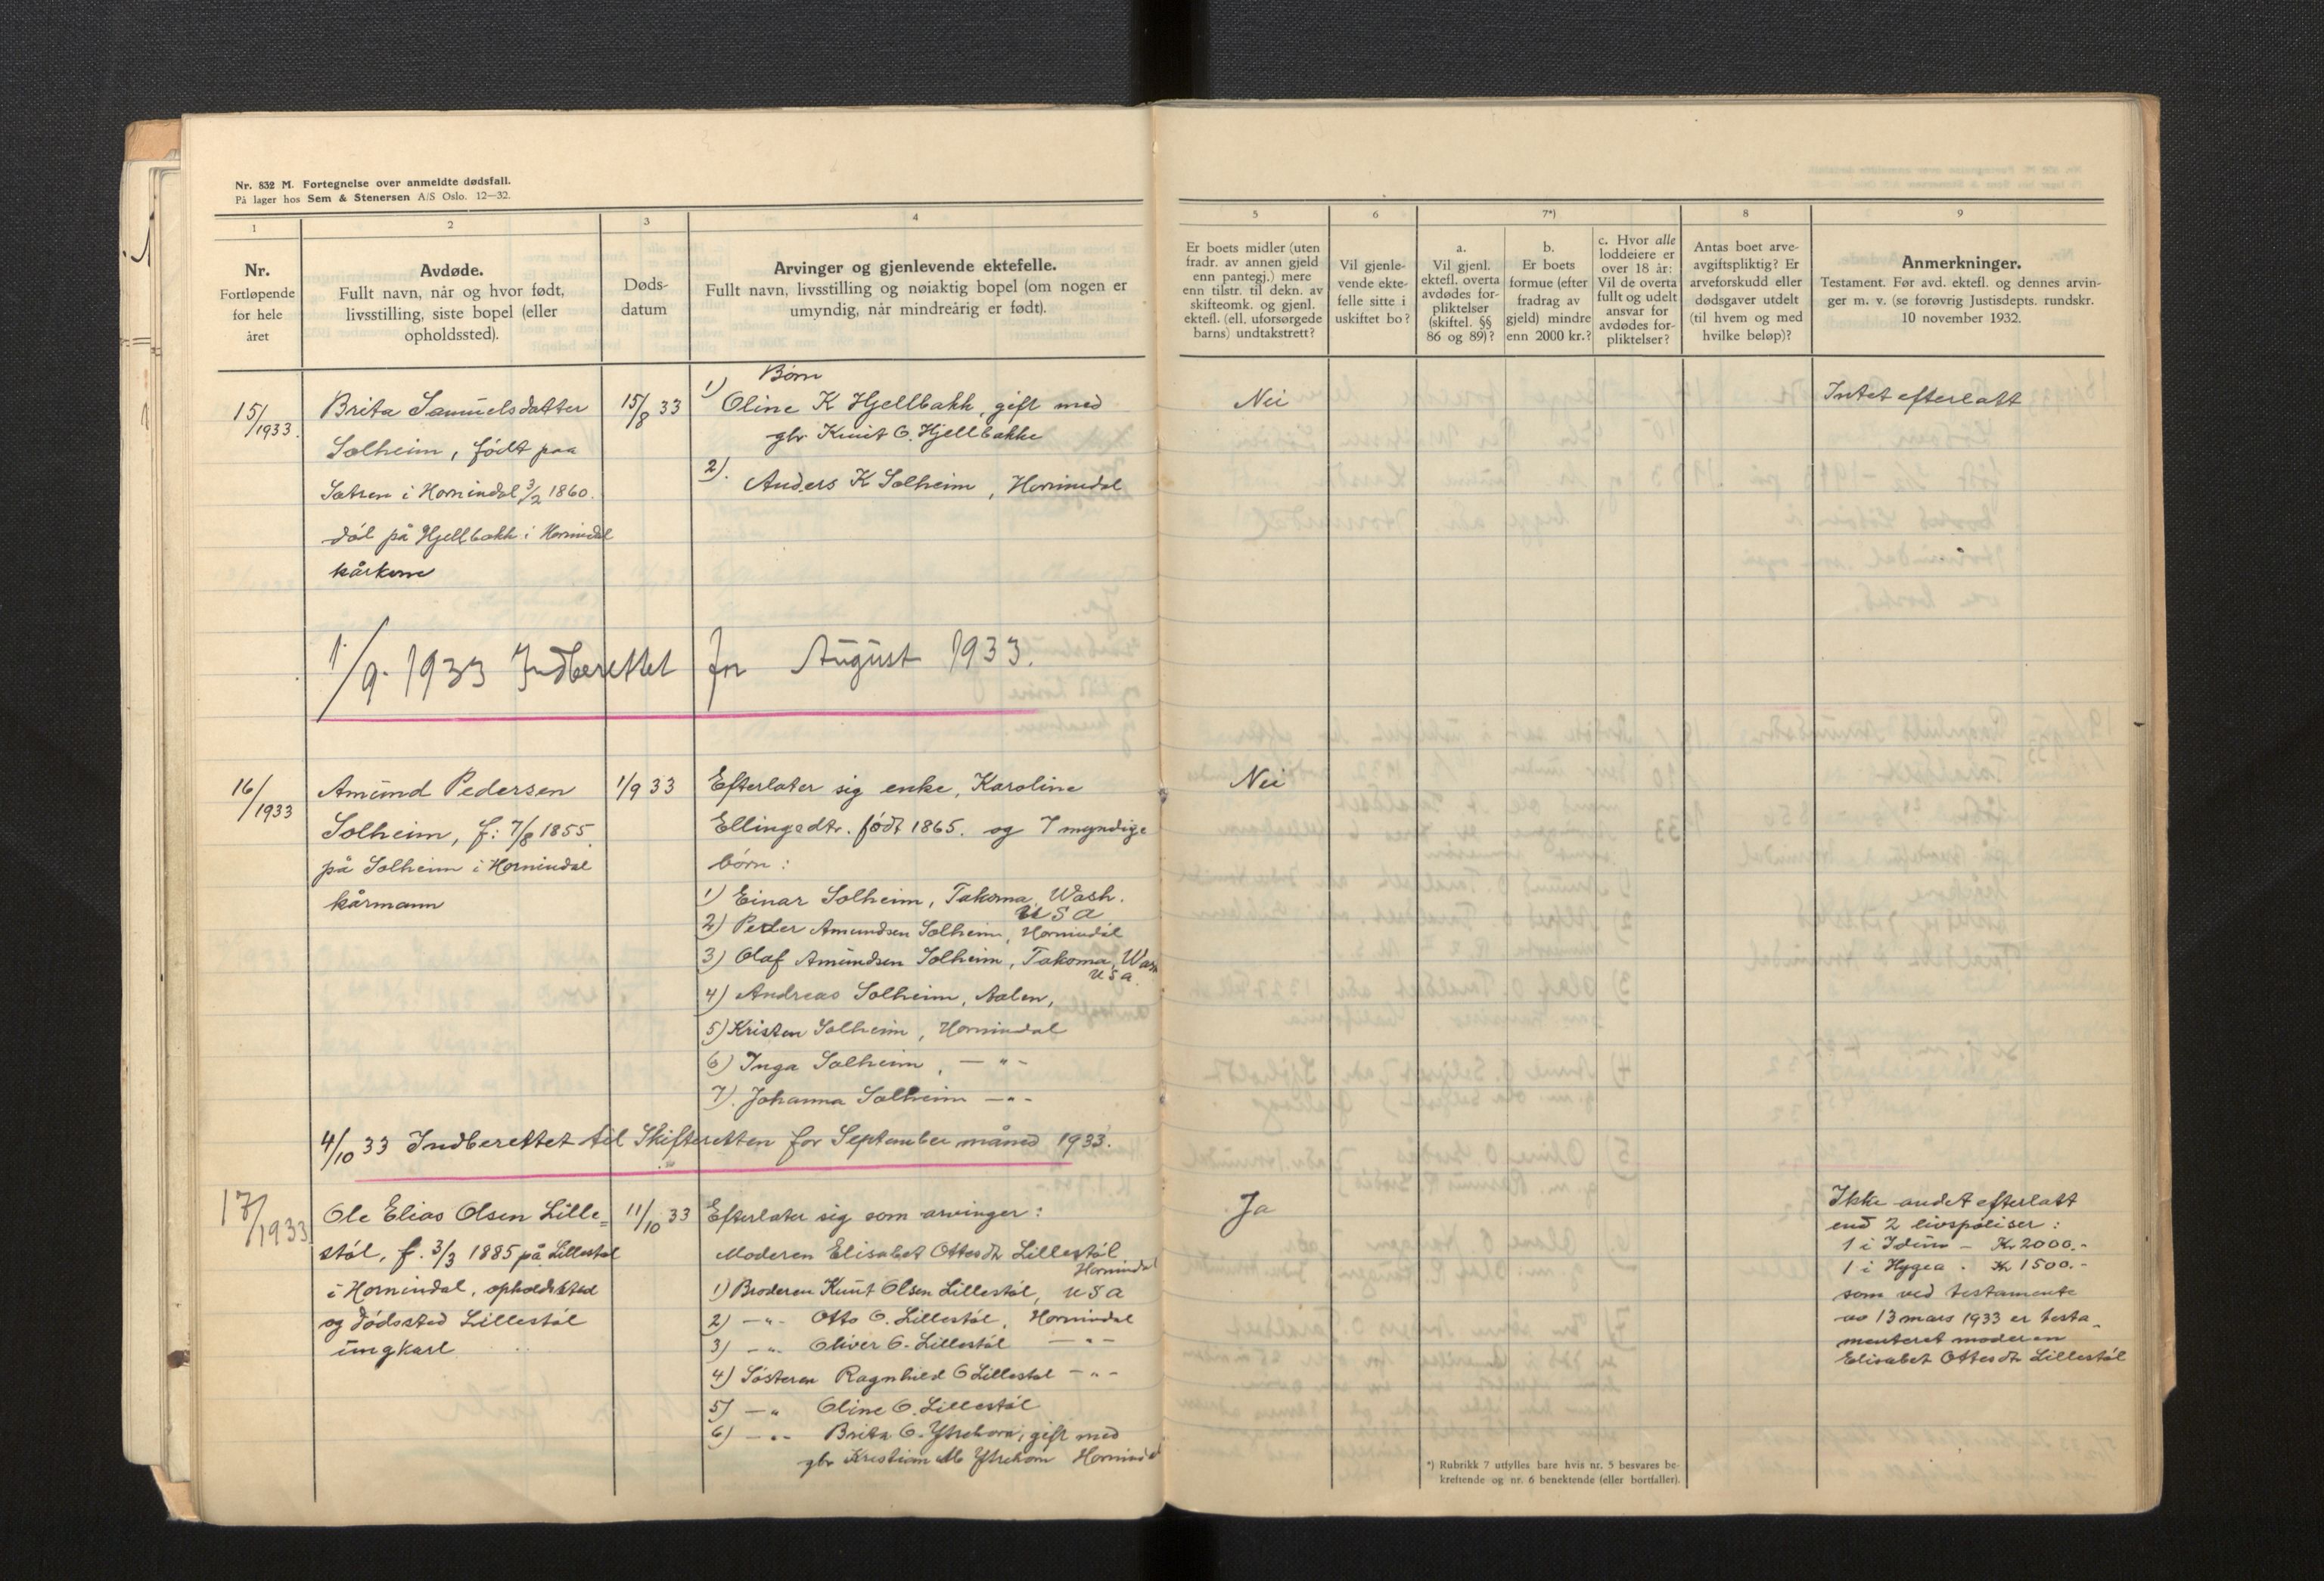 Nr. 832 M. Fortegnelse over anmeldte dødsfall.
På lager hos Sem & Stenersen A/S Oslo. 12—32.
1
Nr.
Fortløpende
for hele
året
2
Avdøde.
Fullt navn, når og hvor født,
livsstilling, siste bopel (eller
opholdssted).
3
Døds-
datum
4
Arvinger og gjenlevende ektefelle.
Fullt navn, livsstilling og nøiaktig bopel (om nogen er
umyndig, når mindreårig er født).
5
Er boets midler (uten
fradr. av annen gjeld
enn pantegj.) mere
enn tilstr. til dekn. av
skifteomk. og gjenl.
ektefl. (ell. uforsørgede
barns) undtakstrett?
6
Vil gjenle-
vende ekte-
felle sitte i
uskiftet bo?
7*)
a.
Vil gjenl.
ektefl. overta
avdødes for-
pliktelser
(skiftel. §§
86 og 89)?
b.
Er boets
formue (efter
fradrag av
gjeld) mindre
enn 2000 kr.?
c. Hvor alle
loddeiere er
over 18 år:
Vil de overta
fullt og udelt
ansvar for
avdødes for-
pliktelser?
8
Antas boet arve-
avgiftspliktig? Er
arveforskudd eller
dødsgaver utdelt
(til hvem og med
hvilke beløp)?
9
Anmerkninger.
Testament. Før avd. ektefl. og dennes arvin-
ger m. v. (se forøvrig Justisdepts. rundskr.
10 november 1932.
15/1933.
Brita Samuelsdatter
Solheim, født paa
Sætren i Hornindal 3/2 1860.
död på Hjellbakk i Hornindal
kårkone
15/8 33
Børn
1) Oline K Hjellbakk, gift med
gbr Knut O. Hjellbakke
2). Anders K Solheim, Hornindal
Nei
Intet efterlatt
1/9. 1933 Indberettet for August 1933.
16/1933
Amund Pedersen
Solheim, f: 7/8 1855.
på Solheim i Hornindal
kårmann
1/9 33
Efterlater sig enke, Karoline
Ellingsdtr. født 1865. og 7 myndige
børn:
1) Einar Solheim, Takoma, Wash.
USA
2) Peder Amundsen Solheim, Hornindal
3) Olaf Amundsen Solheim, Takoma, Wash
USA.
4) Andreas Solheim, Aalen,
5) Kristen Solheim, Hornindal
6) Inga Solheim, — " -
7). Johanna Solheim — " -
Nei
4/10 33 Indberettet til Skifteretten for September måned 1933.
17/1933
Ole Elias Olsen Lille=
støl, f. 3/3 1885 på Lillestøl
i Hornindal, opholdssted
og dødssted Lillestøl
ungkarl
11/10 33
Efterlater sig som arvinger:
Moderen Elisabet Ottesdtr Lillestøl
Hornindal
1) Broderen Knut Olsen Lillestøl, USA
2) — " - Otto O. Lillestøl, Hornindal
3) — " - Oliver O. Lillestøl — " -
4) Søsteren Ragnhild O Lillestøl — " -
5) — " Oline O. Lillestøl
6) — " - Brita O. Ytrehorn, gift med
gbr Kristian M Ytrehorn Hornindal
Ja
Ikke andet efterlatt
end 2 livspoliser:
1 i Idun — Kr 2000.-
1 i Hygea . Kr 1500.-
som ved testamente
av 13 mars 1933 er testa-
menteret moderen
Elisabet Ottesdtr Lillestøl
*) Rubrikk 7 utfylles bare hvis nr. 5 besvares be-
kreftende og nr. 6 benektende (eller bortfaller).